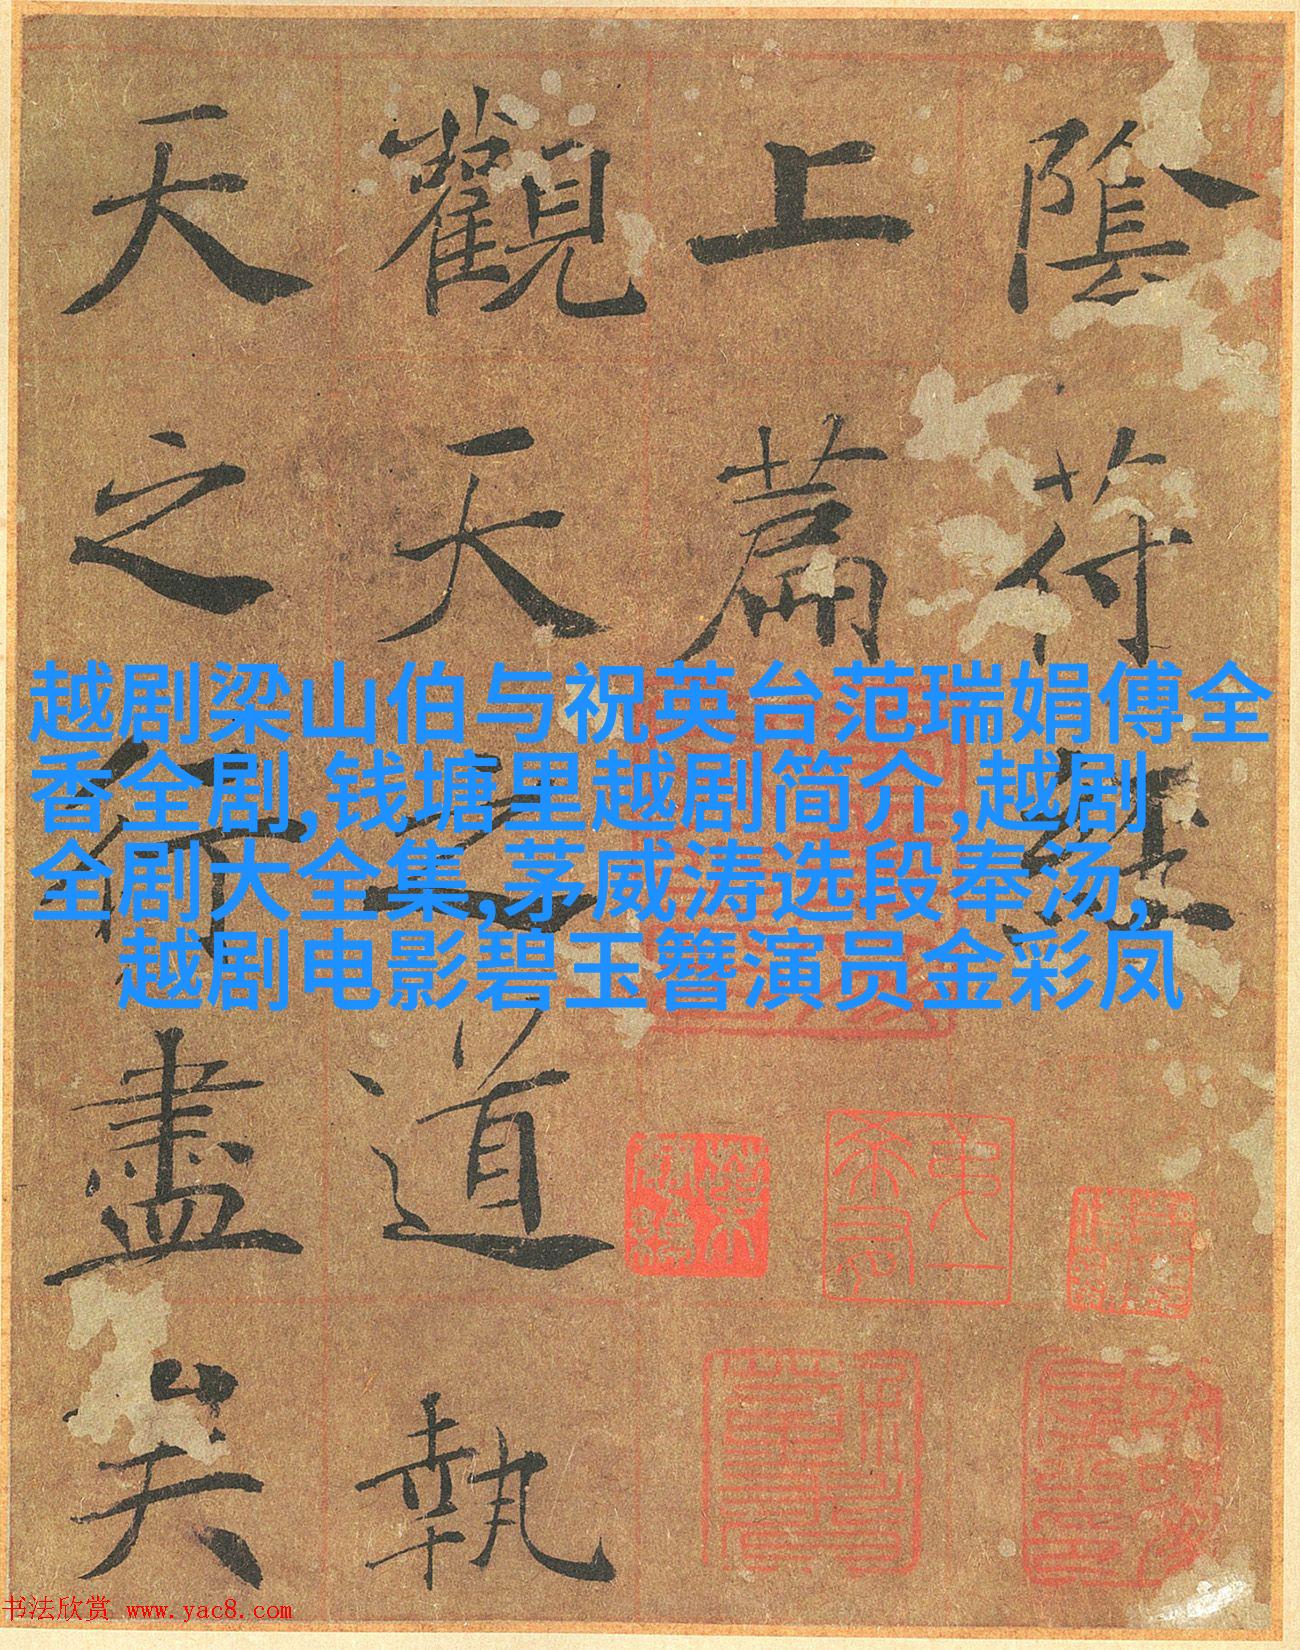 陰符經
上篇
觀天之道執
天之行盡矣
越剧梁山伯与祝英台范瑞娟傅全
香全剧,钱塘里越剧简介,越剧
全剧大全集,茅威涛选段奉汤,
越剧电影碧玉簪演员金彩凤
书法欣赏 www.yac8.com